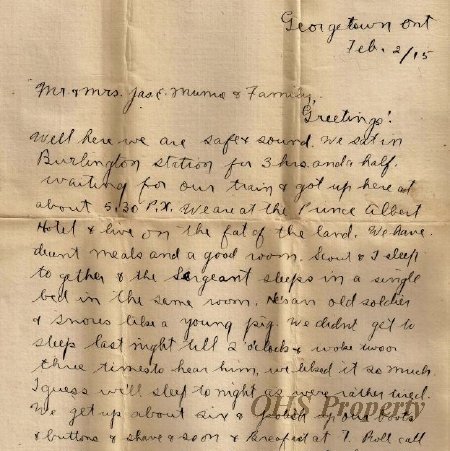 Georgetown Ont
Feb. 2/15
Mr. & Mrs. Jas. E. Mums & Family,
Greetings!
Well here we are safe & sound. We sat in
Burlington station for 3 hrs. and a half
waiting for our train & got up here at
about 5.30 P.X. We are at the Prince Albert
Hotel & live on the fat of the land. We have
decent meals and a good room. & I sleep
together & the Sergeant sleeps in a single
bed in the same room. He's an old soldier
& snores like a young pig. We didn't get to
sleep last night till 2 o'clock & woke two or
three times to hear him, we liked it so much.
I guess we'll sleep to night as we're rather tired.
We get up about six & polish up our boots
& buttons & shave & soon & breakfast at 7. Roll call
QHS Property